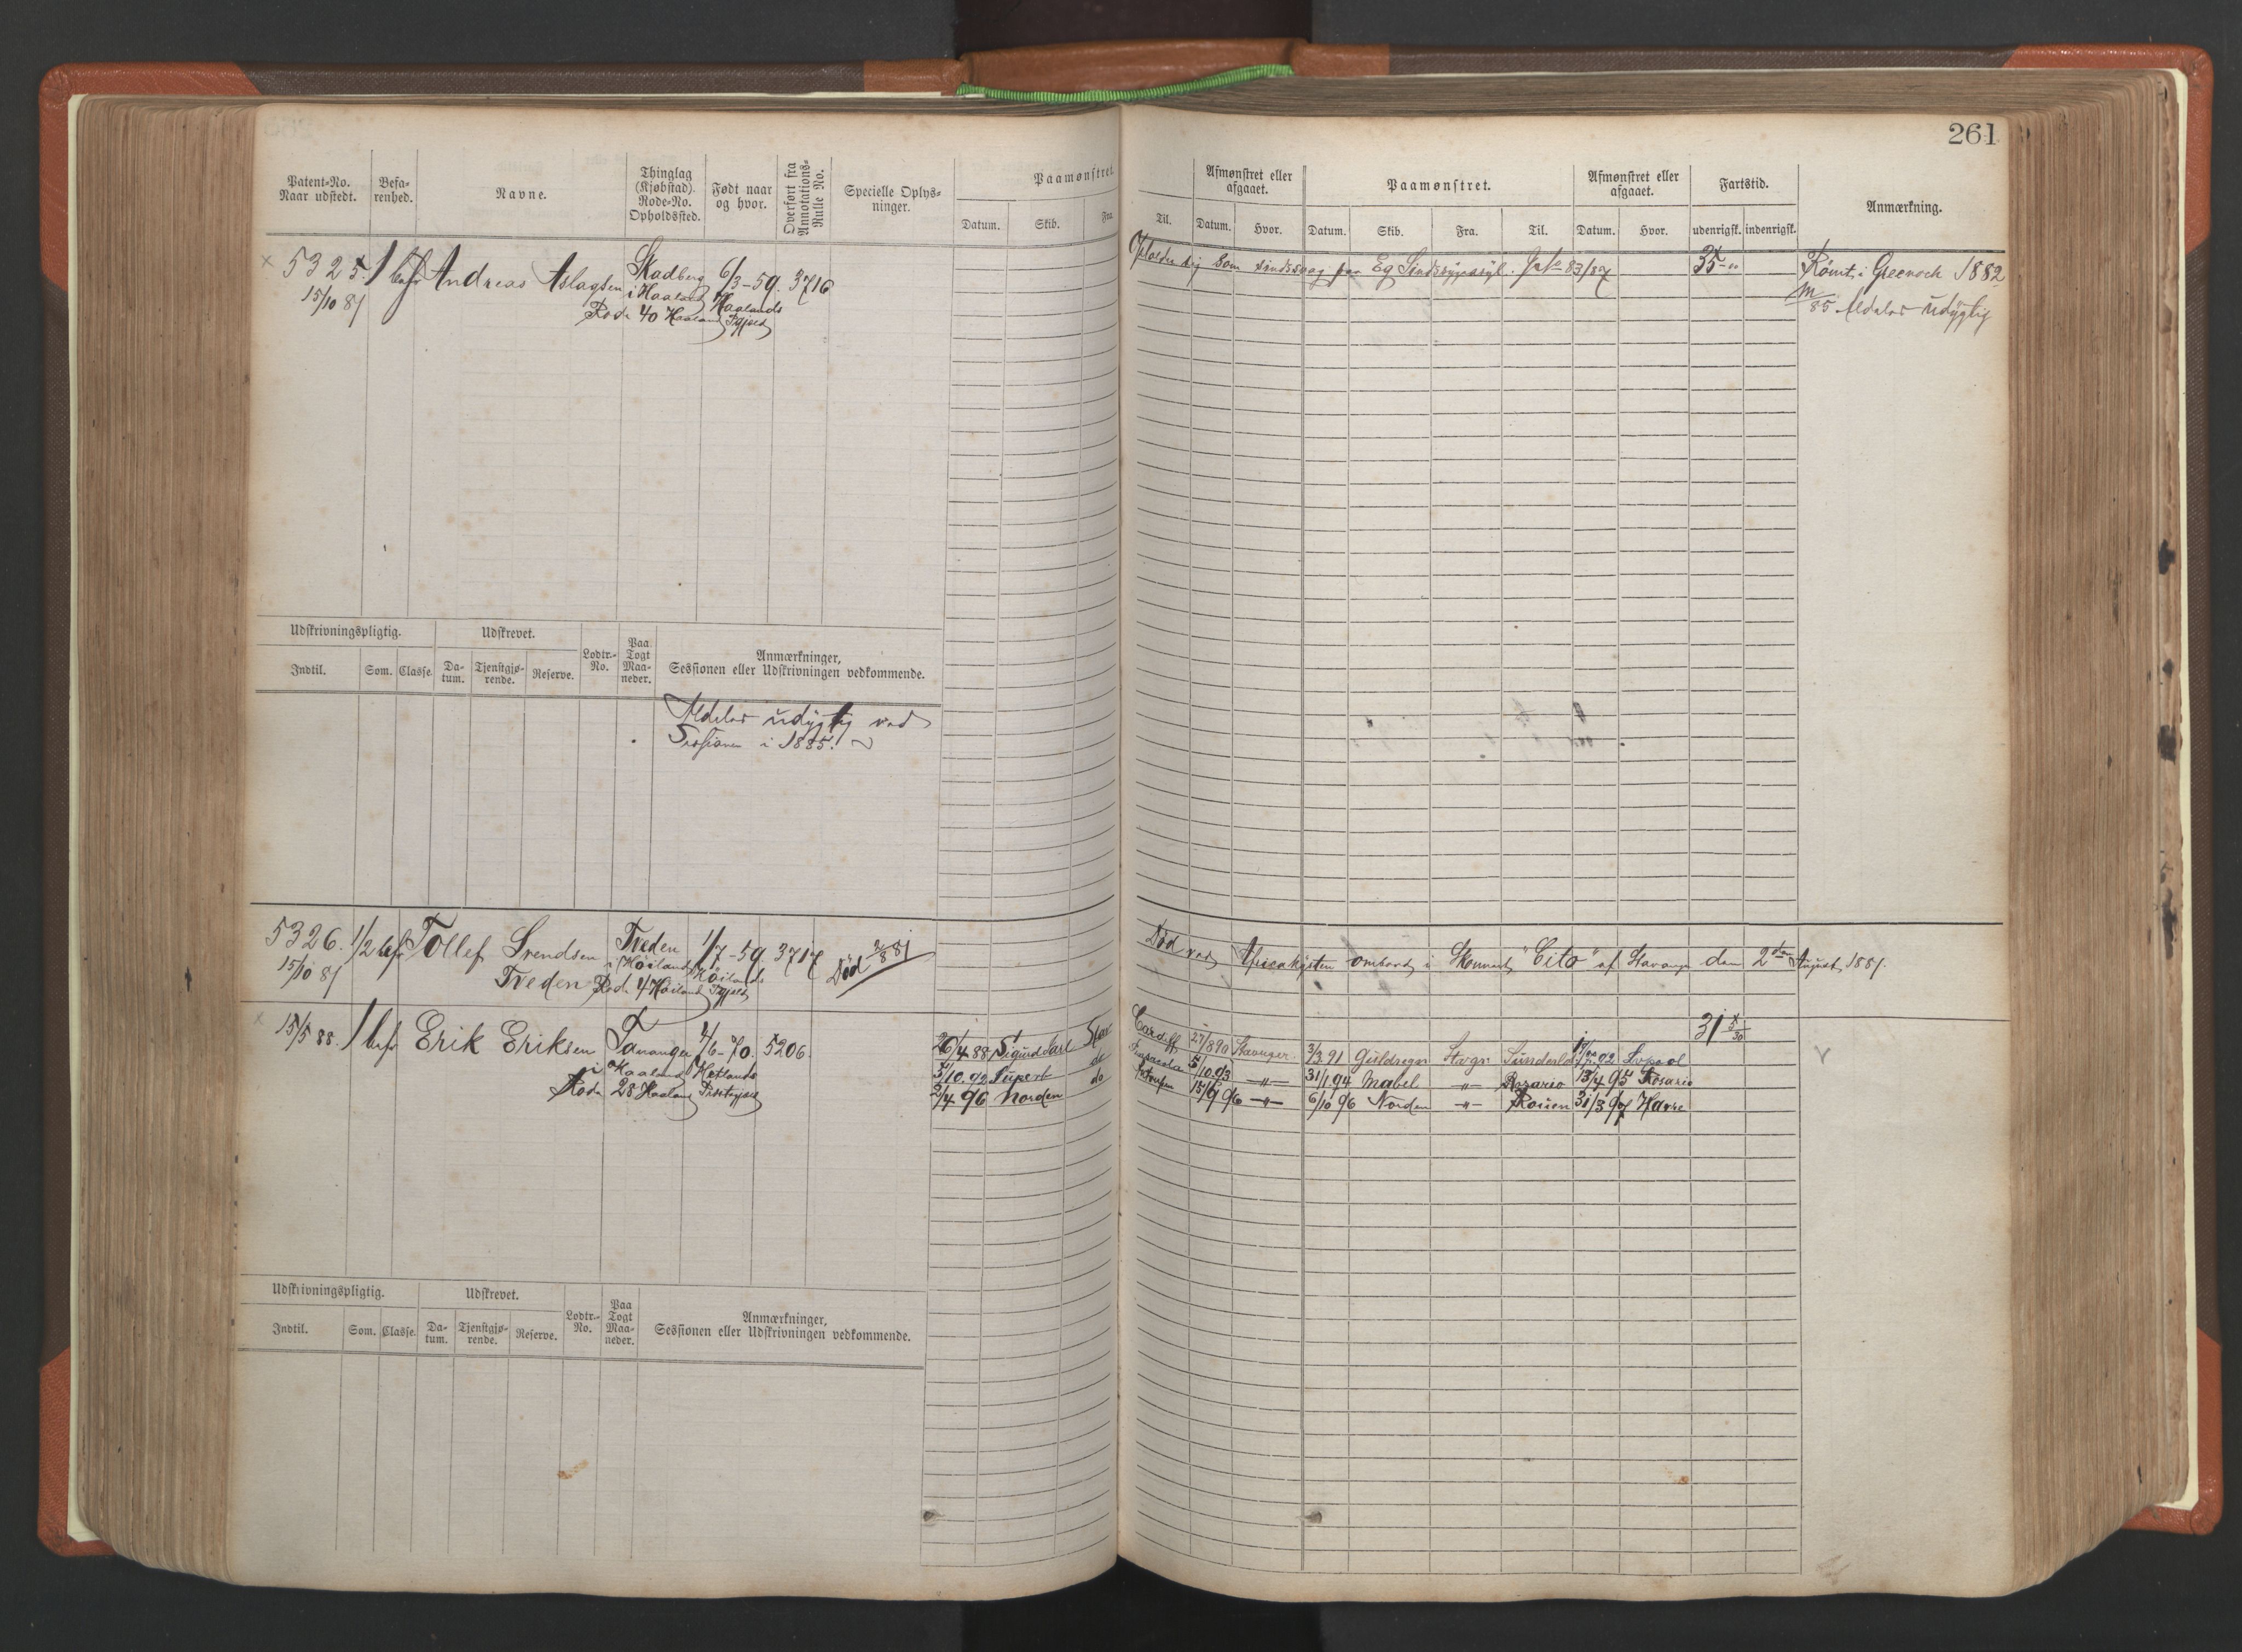 261
Patent-No. Naar udstedt.
Befa-renhed.
Navne.
Thinglag (Kjøbstad). Rode-No. Opholdssted.
Født naar og hvor.
Overført fra Annotations-Rulle No.
Specielle Oplys-ninger.
Paamønstret.
Datum. Skib. Fra. Til.
Afmønstret eller afgaaet.
Datum. Hvor.
Paamønstret.
Datum. Skib. Fra. Til.
Afmønstret eller afgaaet.
Datum. Hvor.
Fartstid.
udenrigsk. indenrigsk.
Anmærkning.
5325. 1 bef Andreas Aslagsen Skadberg 6/3-59. 3716
15/10 81 i Haaland Haalands
Rode 40 Haaland Prgjeld
Opholder sig som sindssvag paa Eg Sindssygeasyl 83/87 35 Rømt i Greenock 1882
85 Aldeles udygtig
Udskrivningspligtig. Udskrevet. Lodtr.-No. Paa Togt Maa-neder. Anmærkninger, Sessionen eller Udskrivningen vedkommende.
Indtil. Som. Classe. Da-tum. Tjenstgjø-rende. Reserve.
Aldeles udygtig ved
Sessionen i 1885.
5326. 1/2 bef Tollef Svendsen Tveden 1/7-59. 3717 Død 2/8 81
15/10 81 i Høiland Høilands
Tveden Rode 4 Høiland Prgjeld
Død ved Africakysten ombord i Skonnert "Cito" af Stavanger den 2den August 1881.
15/5 88. 1 bef Erik Eriksen Tananger 4/6-70. 5206.
i Haaland Hetlands
Rode 28 Haaland Præstegjeld
31 5/30
26/4 88 Sigurd Jarl Stav Cardiff 27/8 90 Stavanger. 3/3 91 Guldregn Stvgr Sunderld 92 Lvpool
3/10 92 Rupert do Pensacola 5/10 93 -"- 31/1 94 Mabel -"- Rosario 13/4 95 Rosario
2/4 96 Norden do 15/6 96 -"- 6/10 96 Norden -"- Rouen 31/3 97 Havre
Udskrivningspligtig. Udskrevet. Lodtr.-No. Paa Togt Maa-neder. Anmærkninger, Sessionen eller Udskrivningen vedkommende.
Indtil. Som. Classe. Da-tum. Tjenstgjø-rende. Reserve.